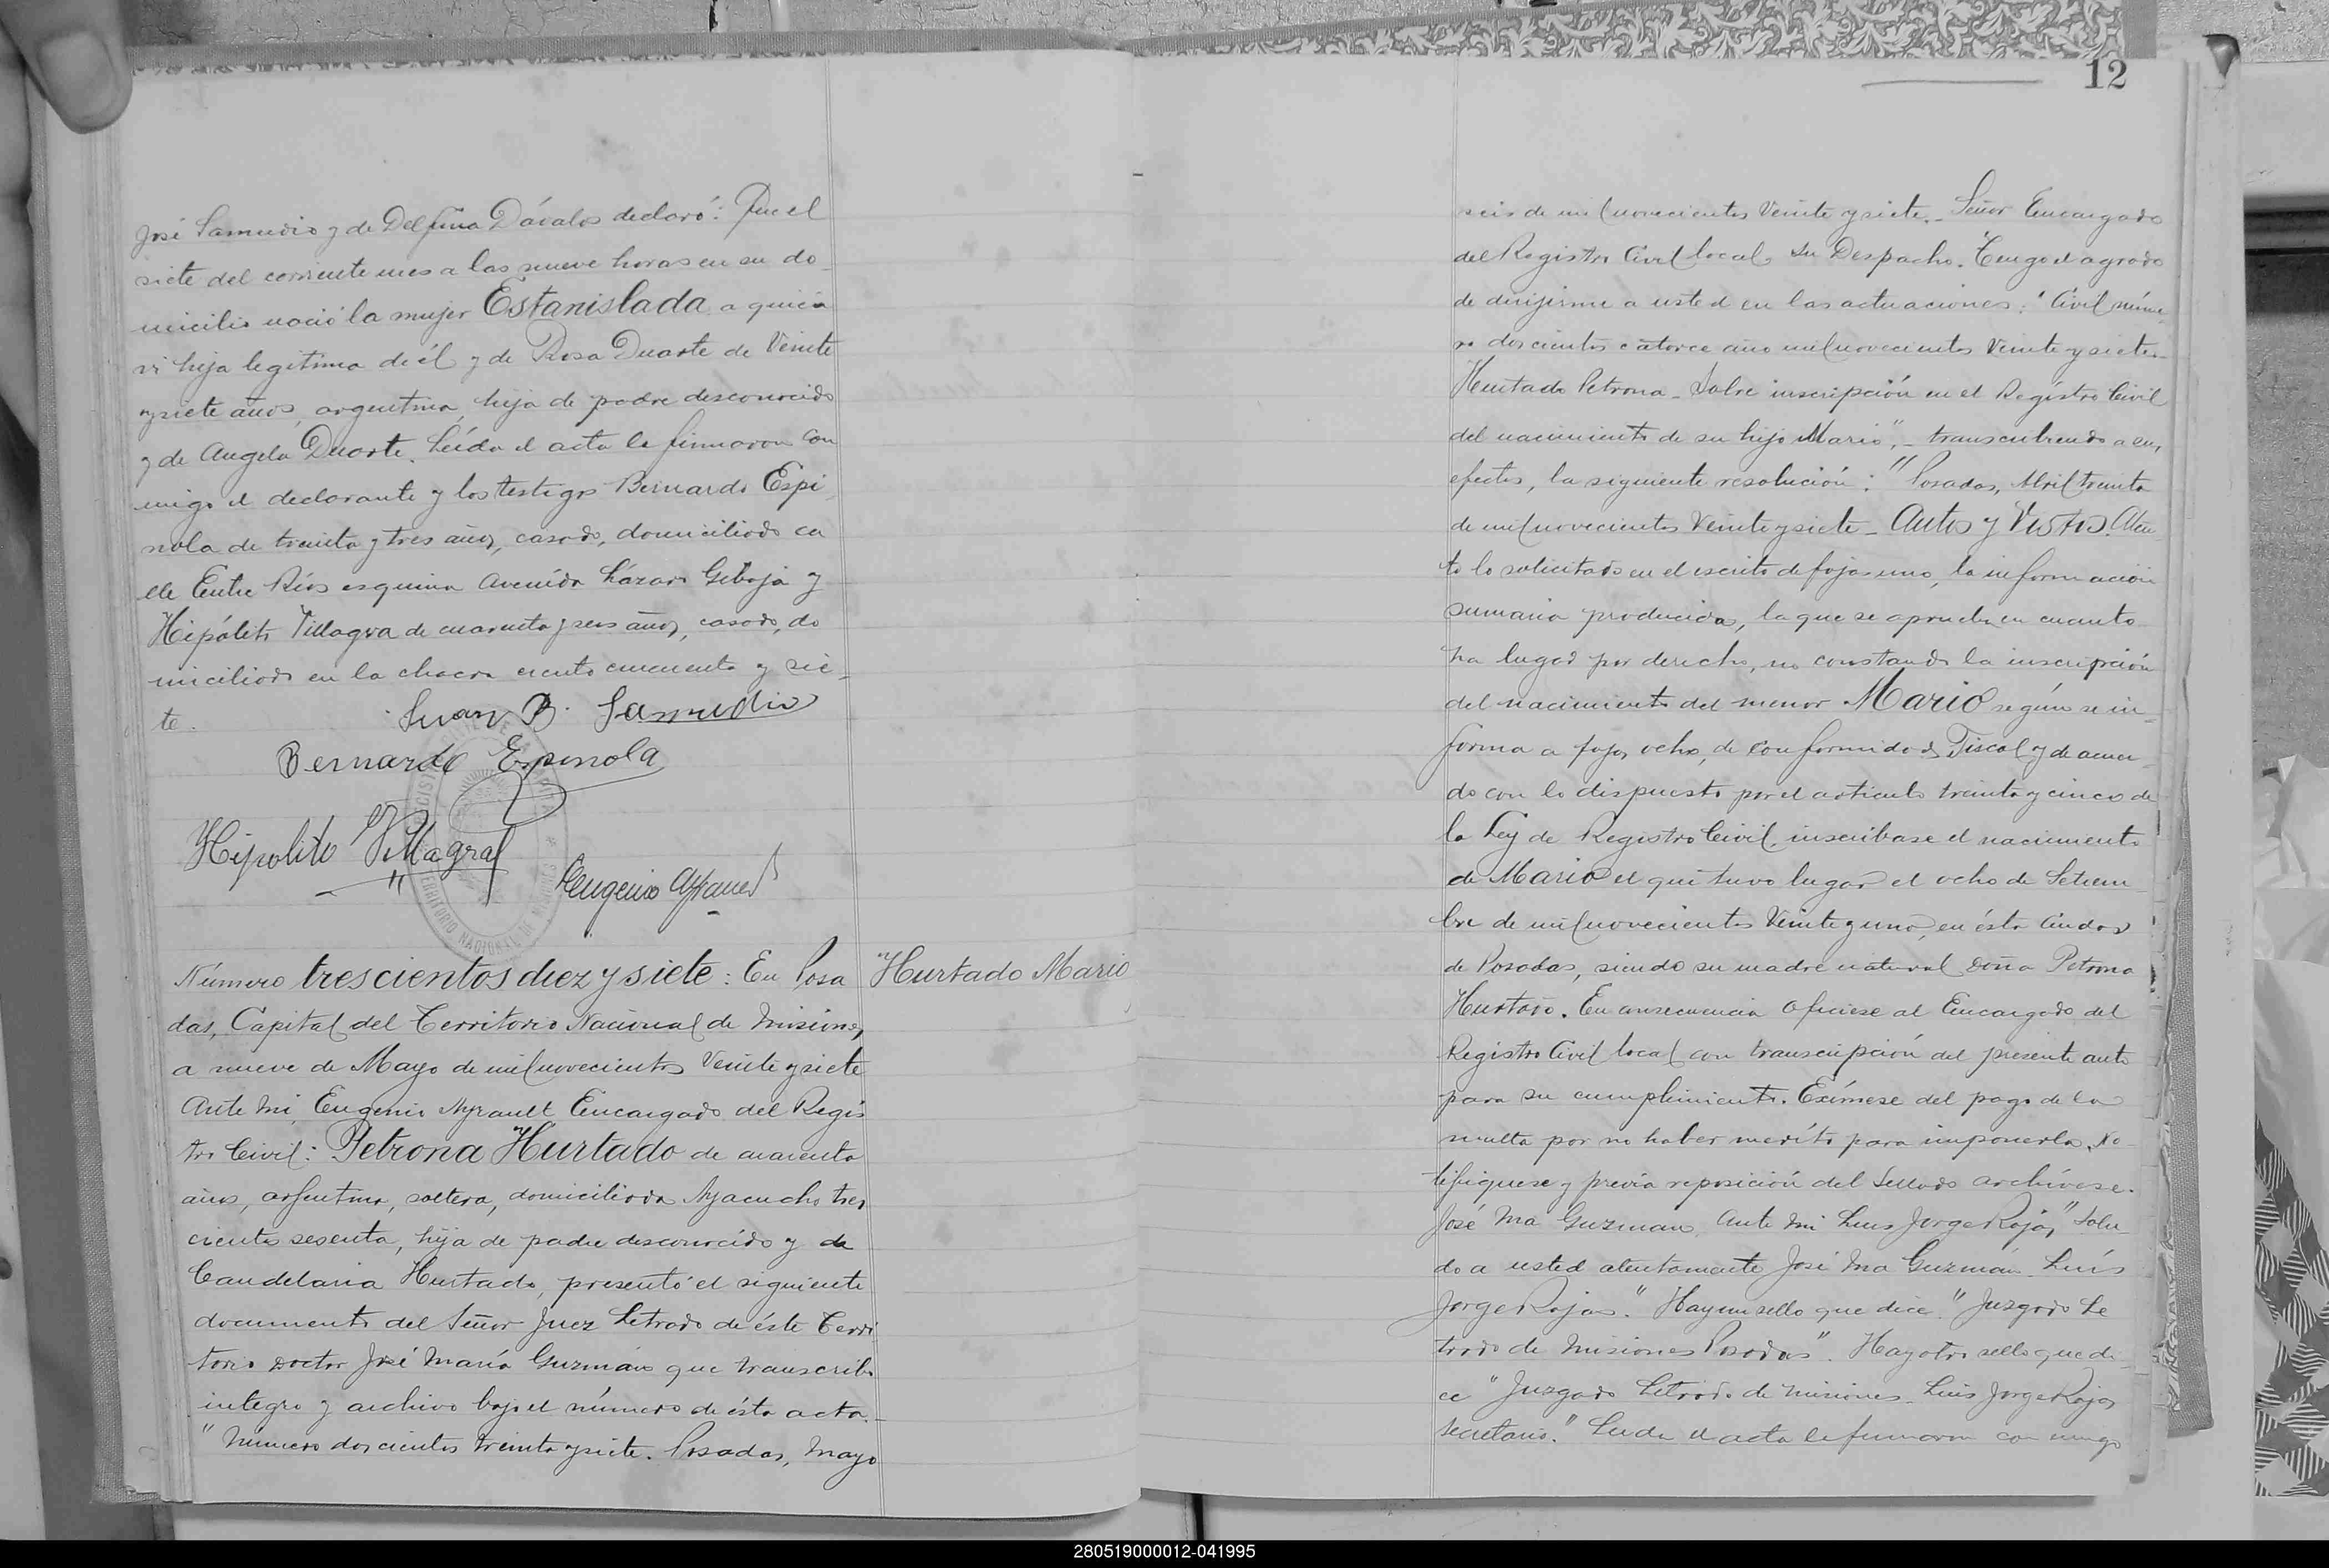 José Samudio y de Delfina Dávalos declaró: Que el
siete del corriente mes a las nueve horas en su do
micilio nació la mujer Estanislada, a quien
vi hija legítima de él y de Rosa Duarte de Veinte
y siete años, argentina, hija de padre desconocido
y de Angela Duarte. Leída el acta la firmaron con
migo el declarante y los testigos Bernardo Espi
nola de treinta y tres años, casado, domiciliado ca
lle Entre Ríos esquina Avenida Lázaro Gibaja y
Hipólito Villagra de cuarenta y seis años, casado, do
miciliado en la chacra ciento cincuenta y sie-
te.
Juan B. Samudio
Bernardo Espinola
Hipolito Villagra
Eugenio Ayrault
Número trescientos diez y siete: En Posa
das, Capital del Territorio Nacional de Misiones,
a nueve de Mayo de mil novecientos Veinte y siete
Ante mi, Eugenio Ayrault Encargado del Regis
tro Civil: Petrona Hurtado de cuarenta
años, argentina, soltera, domiciliada Ayacucho tres
cientos sesenta, hija de padre desconocido y de
Candelaria Hurtado, presentó el siguiente
documento del Señor Juez Letrado de éste Terri
torio Doctor José María Guzmán que transcribo
integro y archivo bajo el número de ésta acta.-
"Número doscientos treinta y siete. Posadas, Mayo
Hurtado Mario
12
seis de mil novecientos Veinte y siete.- Señor Encargado
del Registro Civil local Su Despacho. Tengo el agrado
de dirijirme a usted en las actuaciones: "Civil núme
ro doscientos catorce año mil novecientos Veinte y siete.-
Hurtado Petrona - Sobre inscripción en el Registro Civil
del nacimiento de su hijo Mario",- transcribiendo a sus
efectos, la siguiente resolución: "Posadas, Abril treinta
de mil novecientos Veinte y siete - Autos y Vistos. Aten
to lo solicitado en el escrito de fojas uno, la información
sumaria producida, la que se aprueba en cuanto
ha lugar por derecho, no constando la inscripción
del nacimiento del menor Mario según se in-
forma a fojas ocho, de conformidad Fiscal y de acuer-
do con lo dispuesto por el artículo treinta y cinco de
la Ley de Registro Civil, inscribase el nacimiento
de Mario el que tuvo lugar el ocho de Setiem-
bre de mil novecientos Veinte y uno, en ésta Ciudad
de Posadas, siendo su madre natural doña Petrona
Hurtado. En consecuencia Ofíciese al Encargado del
Registro Civil local con transcripción del presente auto
para su cumplimiento. Exímese del pago de la
multa por no haber mérito para imponerla. No-
tifiquese y previa reposición del Sellado archívese.
José Ma Guzman. Ante mi Luis Jorge Rojas," Salu-
do a usted atentamente José Ma Guzmán. Luís
Jorge Rojas." Hay un sello que dice "Juzgado Le
trado de Misiones Posadas". Hay otro sello que di-
ce "Juzgado Letrado de Misiones. Luis Jorge Rojas
Secretario." Leida el acta la firmaron con migo
280519000012-041995